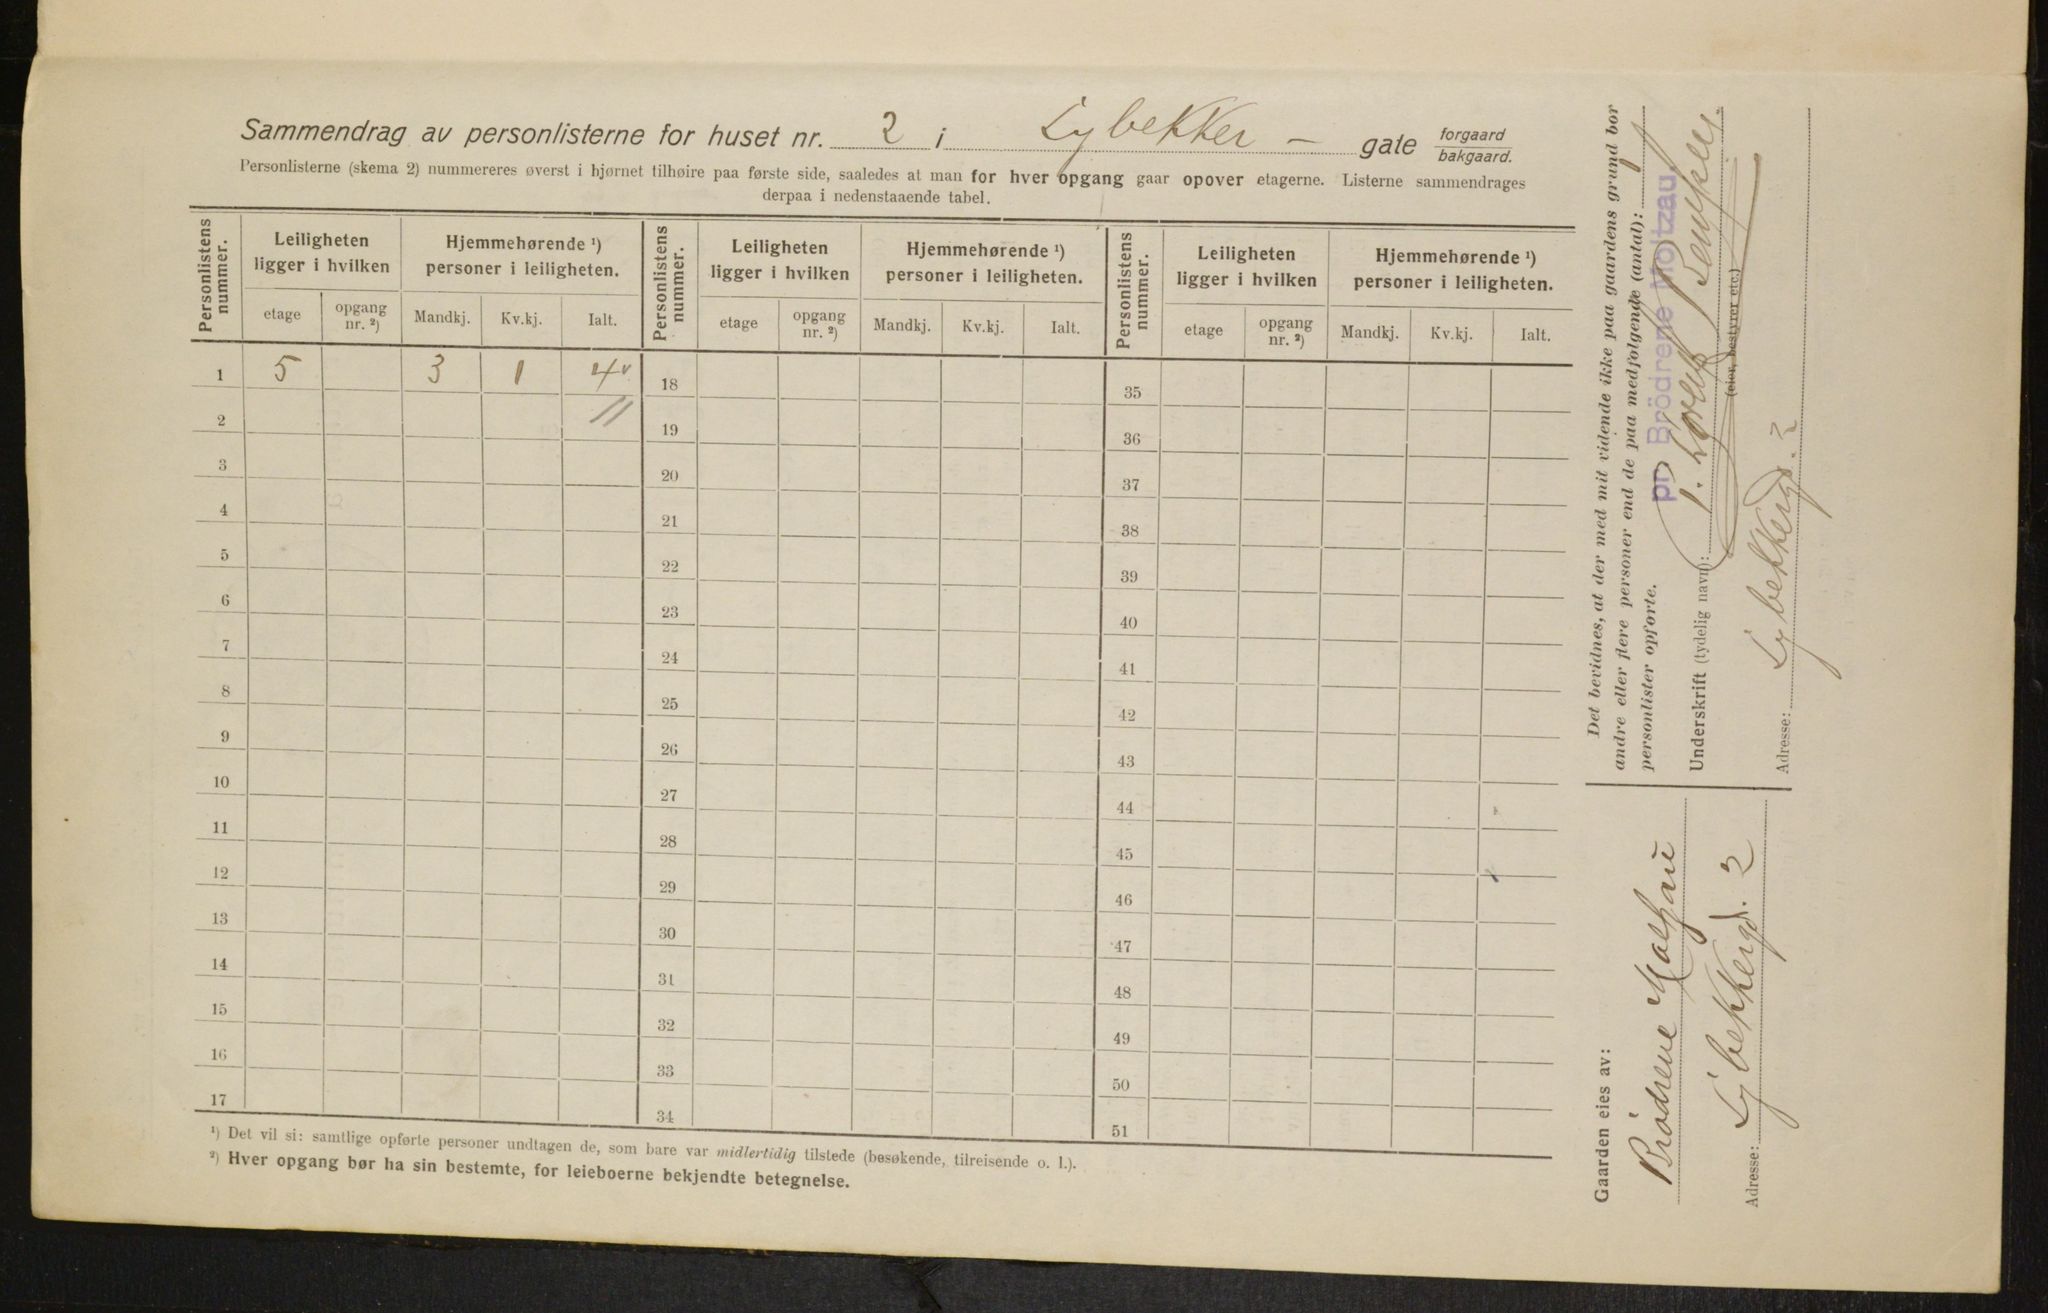 Sammendrag av personlisterne for huset nr. 2 i Lybekker - gate forgaard bakgaard.
Personlisterne (skema 2) nummereres øverst i hjørnet tilhøire paa første side, saaledes at man for hver opgang gaar opover etagerne. Listerne sammendrages
derpaa i nedenstaaende tabel.
Personlistens nummer. Leiligheten ligger i hvilken Hjemmehørende ¹) personer i leiligheten. Personlistens nummer. Leiligheten ligger i hvilken Hjemmehørende ¹) personer i leiligheten. Personlistens nummer. Leiligheten ligger i hvilken Hjemmehørende ¹) personer i leiligheten.
etage opgang nr. ²) Mandkj. Kv.kj. Ialt. etage opgang nr. ²) Mandkj. Kv.kj. Ialt. etage opgang nr. ²) Mandkj. Kv.kj. Ialt.
1 5 3 1 4 18 35
2 19 36
3 20 37
4 21 38
5 22 39
6 23 40
7 24 41
8 25 42
9 26 43
10 27 44
11 28 45
12 29 46
13 30 47
14 31 48
15 32 49
16 33 50
17 34 51
¹) Det vil si: samtlige opførte personer undtagen de, som bare var midlertidig tilstede (besøkende, tilreisende o. l.).
²) Hver opgang bør ha sin bestemte, for leieboerne bekjendte betegnelse.
Det bevidnes, at der med mit vidende ikke paa gaardens grund bor
andre eller flere personer end de paa medfølgende (antal): 1
personlister opførte.
pr. Brödrene Moltzau
Underskrift (tydelig navn):
(eier, bestyrer etc.)
Adresse: Lybekkergd. 2
Gaarden eies av:
Brödrene Moltzau
Adresse: Lybekkergd. 2